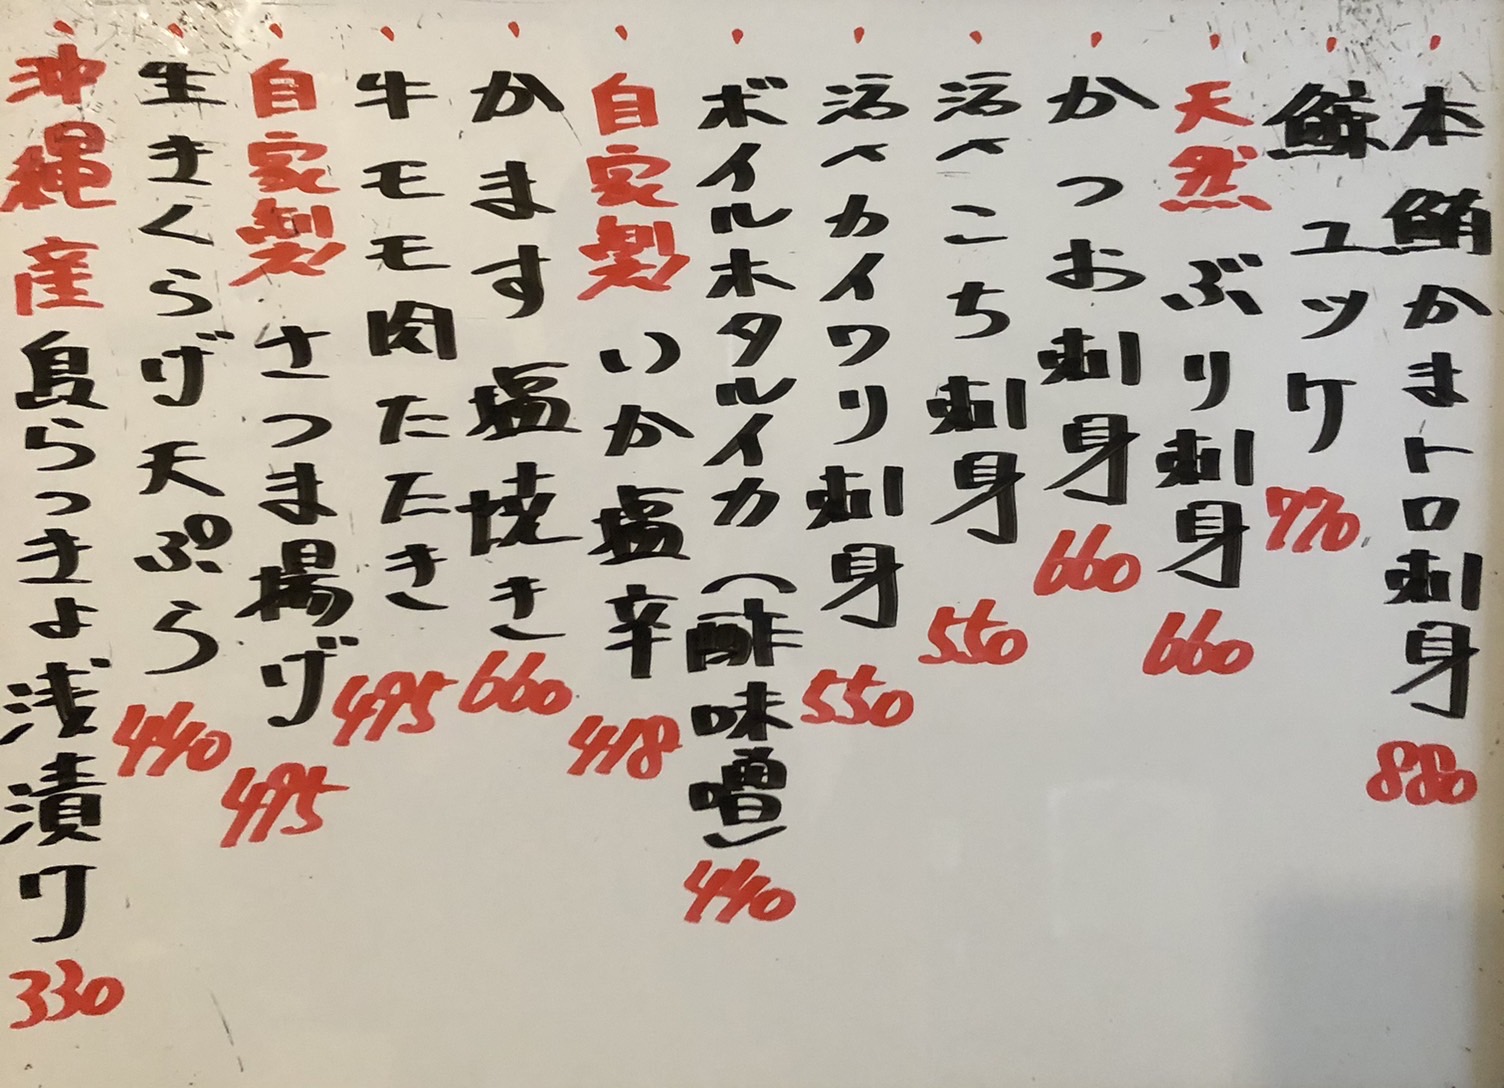 本鮪かまトロ刺身 880
鯨ユッケ 770
天然ぶり刺身 660
かつお刺身 660
活〆こち刺身 550
活〆カイワリ刺身 550
ボイルホタルイカ(酢味噌) 440
自家製いか塩辛 418
かます塩焼き 660
牛モモ肉たたき 495
自家製さつま揚げ 495
生きくらげ天ぷら 440
沖縄産島らっきょ浅漬け 330